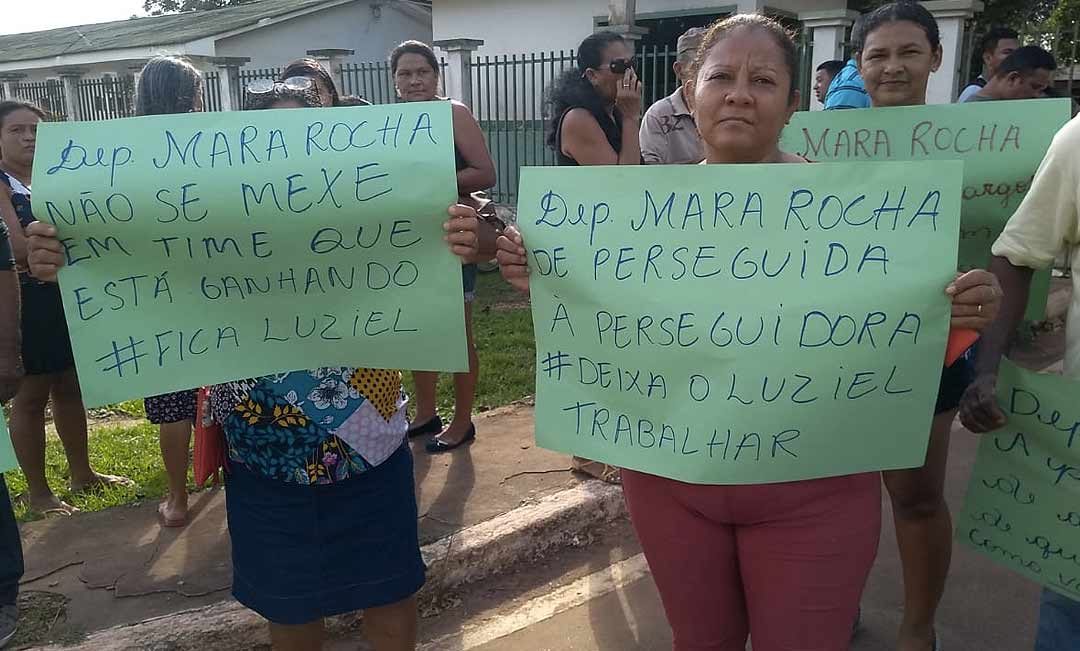 Dep. MARA ROCHA
NÃO SE MEXE
EM TIME QUE
ESTÁ GANHANDO
#FICA LUZIEL
Dep. MARA ROCHA
DE PERSEGUIDA
À PERSEGUIDORA
#DEIXA O LUZIEL
TRABALHAR
MARA ROCHA